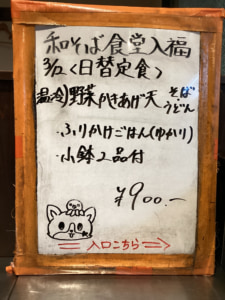 和そば食堂入福
3/12<日替定食>
温(冷)野菜かきあげ天 そば
うどん
・ふりかけごはん(ゆかり)
・小鉢2品付
¥900.-
⇒ 入口こちら ⇒